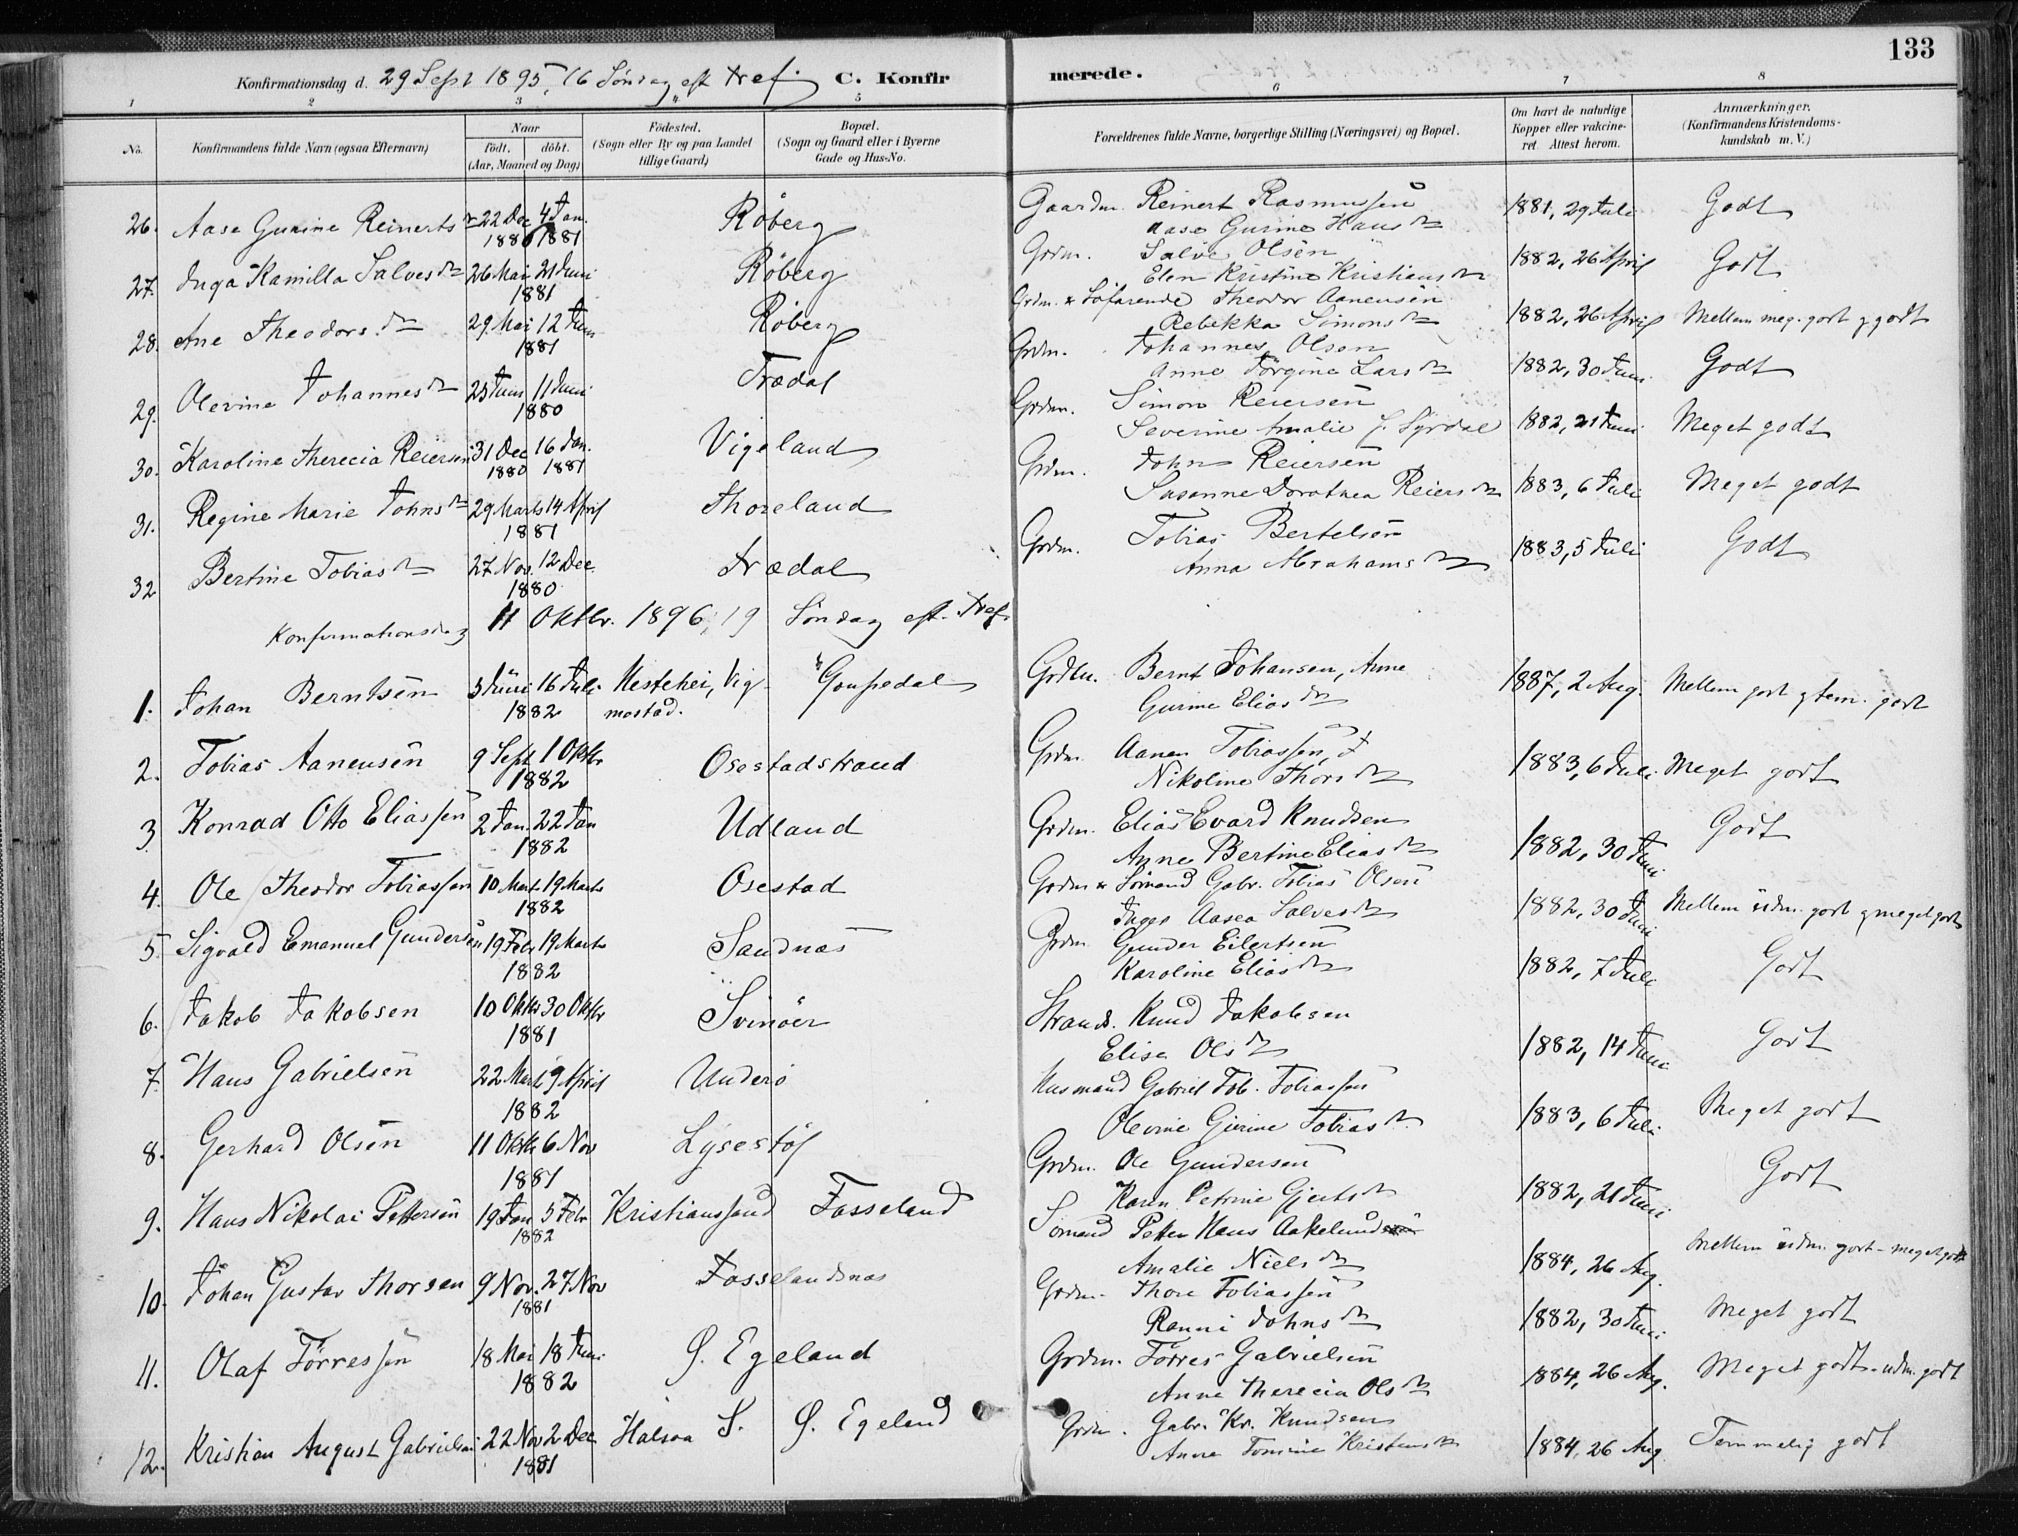 133
Konfirmationsdag d. 29 Sept 1895, 16 Søndag eft Tref. C. Konfirmerede.
1 2 3 4 5 6 7 8
No. Konfirmandens fulde Navn (ogsaa Efternavn) Naar født. døbt. (Aar, Maaned og Dag) Fødested. (Sogn eller By og paa Landet tillige Gaard) Bopæl. (Sogn og Gaard eller i Byerne Gade og Hus-No. Forældrenes fulde Navne, borgerlige Stilling (Næringsvei) og Bopæl. Om havt de naturlige Kopper eller vakcineret. Attest herom. Anmærkninger. (Konfirmandens Kristendomskundskab m. V.)
26. Aase Gurine Reinertsdtr 22 Dec 1880 4 Jan. 1881 Røberg Gaardm. Reinert Rasmussen 1881, 29 Juli Godt
Aase Gurine Hansdtr
27. Inga Kamilla Salvesdtr 26 Mai 21 Juni 1881 Røberg Grdm. Salve Olsen 1882, 26 April Godt
Elen Kristine Kristiansdtr
28. Ane Theodorsdtr 29 Mai 12 Juni 1881 Røberg Grdm. & Søfarende Theodor Aanensen 1882, 26 April Mellem meg. godt & godt
Rebekka Simonsdtr
29. Olevine Johannesdtr 25 Juni 11 Juni 1880 Trædal Grdm. Johannes Olsen 1882, 30 Juni Godt
Anne Jørgine Larsdtr
30. Karoline Therecia Reiersen 31 Dec 1880 16 Jan. 1881 Vigeland Grdm. Simon Reiersen 1882, 21 Juni Meget godt
Severine Amalie f. Syrdal
31. Regine Marie Johnsdtr 29 Marts 14 April 1881 Thoreland Grdm. John Reiersen 1883, 6 Juli Meget godt
Susanne Dorothea Reiersdtr
32 Bertine Tobiasdtr 27 Nov. 12 Dec. 1880 Trædal Grdm. Tobias Bertelsen 1883, 5 Juli Godt
Anna Abrahamsdtr
Konfirmationsdag 11 Oktbr. 1896, 19 Søndag eft. Tref.
1. Johan Berntsen 3 Juni 16 Juli 1882 Hestehei, Vigmostad. Goupedal Grdm. Bernt Johansen, Anne 1887, 2 Aug. Mellem godt & tem. godt
Gurine Eliasdtr
2. Tobias Aanensen 9 Sept 1 Oktbr 1882 Osestadstrand Grdm. Aanen Tobiassen, 1883, 6 Juli Meget godt
Nikoline Thorsdtr
3 Konrad Otto Eliassen 2 Jan. 22 Jan 1882 Udland Grdm. Elias Evard Knudsen 1882, 30 Juni Godt
Anne Bertine Eliasdtr
4. Ole Theodor Tobiassen 10 Marts 19 Marts 1882 Osestad Grdm & Sømand Gabr. Tobias Olsen 1882, 30 Juni Mellem udm. godt & meget godt
Inger Aasea Salvesdtr
5. Sigvald Emanuel Gundersen 19 Febr 19 Marts 1882 Sandnæs Grdm. Gunder Eilertsen 1882, 7 Juli Godt
Karoline Eliasdtr
6. Jakob Jakobsen 10 Oktbr 30 Oktbr 1881 Svinøer Strands. Knud Jakobsen 1882, 14 Juni Godt
Elise Olsdtr
7. Hans Gabrielsen 22 Marts 9 April 1882 Underø Husmand Gabriel Tob. Tobiassen 1883, 6 Juli Meget godt
Olevine Gurine Tobiasdtr.
8. Gerhard Olsen 11 Oktbr 6 Nov 1881 Lysestøl Grdm. Ole Gundersen 1882, 21 Juni Godt
Karen Petrine Gjertsdtr
9. Hans Nikolai Pettersen 19 Jan 5 Febr 1882 Kristianssand Fasseland Sømand Petter Hans Aakelund 1884, 26 Aug. Mellem udm. godt - meget godt
Amalie Nielsdtr
10. Johan Gustav Thorsen 9 Nov. 27 Nov 1881 Fasselandsnæs Grdm. Thore Tobiassen 1882, 30 Juni Meget godt
Ranni Johnsdtr
11. Olaf Tørressen 18 Mai 18 Juni 1882 Ø. Egeland Grdm. Tørres Gabrielsen 1884, 26 Aug. Meget godt - udm. godt
Anne Therecia Olsdtr
12. Kristian August Gabrielsen 22 Nov 2 Dec 1881 Halsaa S. Ø. Egeland Grdm. Gabr. Kr. Knudsen 1884, 26 Aug. Temmelig godt
Anne Tomine Kristensdtr